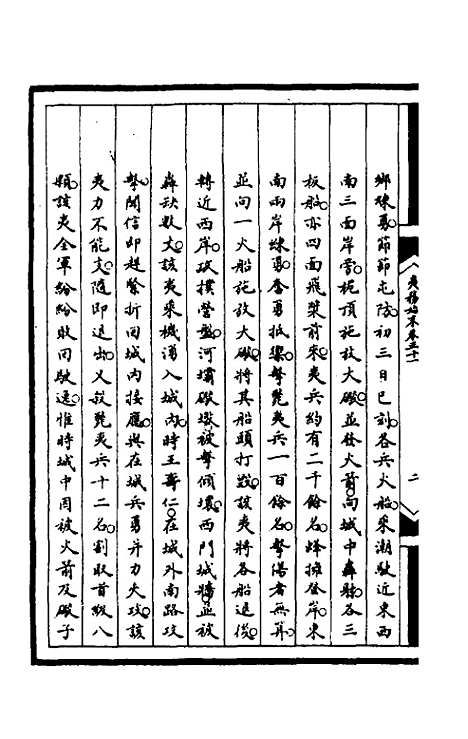 夷務始末卷五十一
二
鄉練勇節節屯防初三日巳刻各兵火船乘潮駛近東西
南三面岸當桅頂施放大礮並發火箭向城中轟擊各三
板船亦四面飛槳前來夷兵約有二千餘名蜂擁登岸東
南兩岸練勇奮勇抵禦擊斃夷兵一百餘名擊傷者無算
並向一火船施放大礮將其船頭打毀該夷將各船退後
轉近西岸攻撲營盤河壩礮墩被擊傾壞西門城牆並被
轟缺數丈該夷乘機湧入城內時王壽仁在城外南路攻
擊聞信即趕緊折回城內接應與在城兵勇并力夾攻該
夷力不能支隨即退出又殺斃夷兵十二名割取首級八
顆該夷全軍紛紛敗回駛遠惟時城中因被火箭及礮子